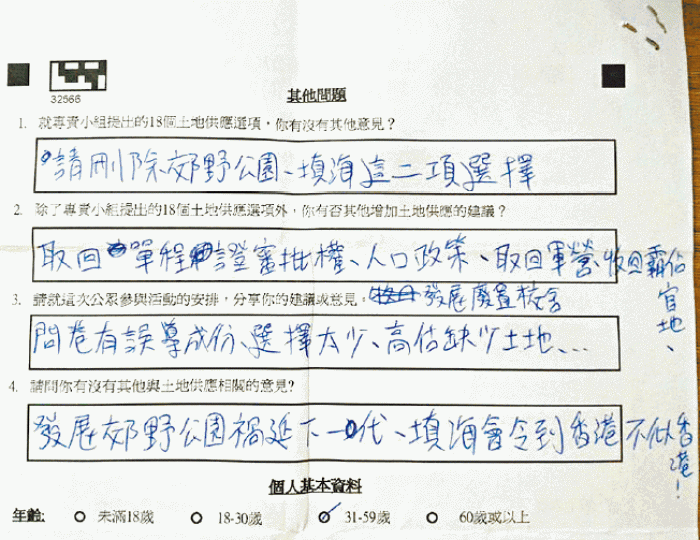 32566
其他問題
1. 就專責小組提出的18個土地供應選項，你有沒有其他意見？
請刪除郊野公園、填海這二項選擇
2. 除了專責小組提出的18個土地供應選項外，你有否其他增加土地供應的建議？
取回單程證審批權、人口政策、取回軍營收回霸佔官地、
發展廢置校舍
3. 請就這次公眾參與活動的安排，分享你的建議或意見。
問卷有誤導成份、選擇太少、高估缺少土地、...
4. 請問你有沒有其他與土地供應相關的意見?
發展郊野公園禍延下一代、填海會令到香港不似香港！
個人基本資料
年齡: 未滿18歲 18-30歲 31-59歲 60歲或以上